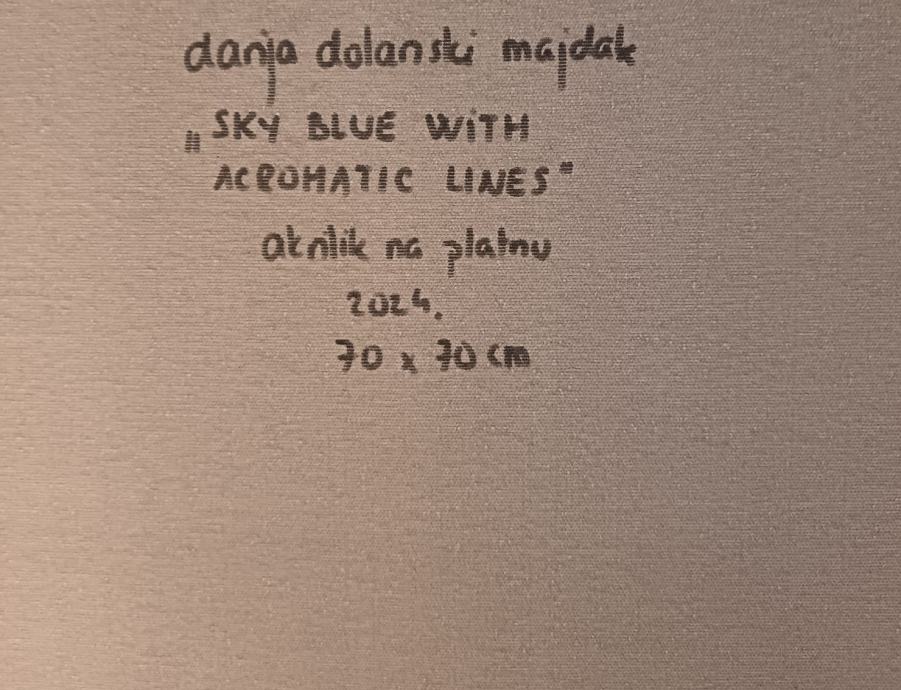 danja dolanski majdak
„SKY BLUE WITH
ACROMATIC LINES"
akrilik na platnu
2024.
70 x 70 cm